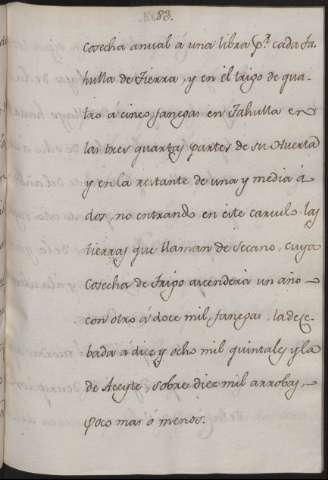 83.
cosecha anual á una libra p.r cada ta-
hulla de Tierra, y en el trigo de qua-
tro á cinco fanegas en Tahulla en
las tres quartas partes de su Huerta
y en la restante de una y media á
dos, no entrando en este calculo las
tierras que llaman de secano, cuya
cosecha de Trigo ascenderá un año
con otro á doce mil fanegas, la de Ce-
bada á diez y ocho mil quintales y la
de Aceyte sobre diez mil arrobas,
poco mas ó menos.